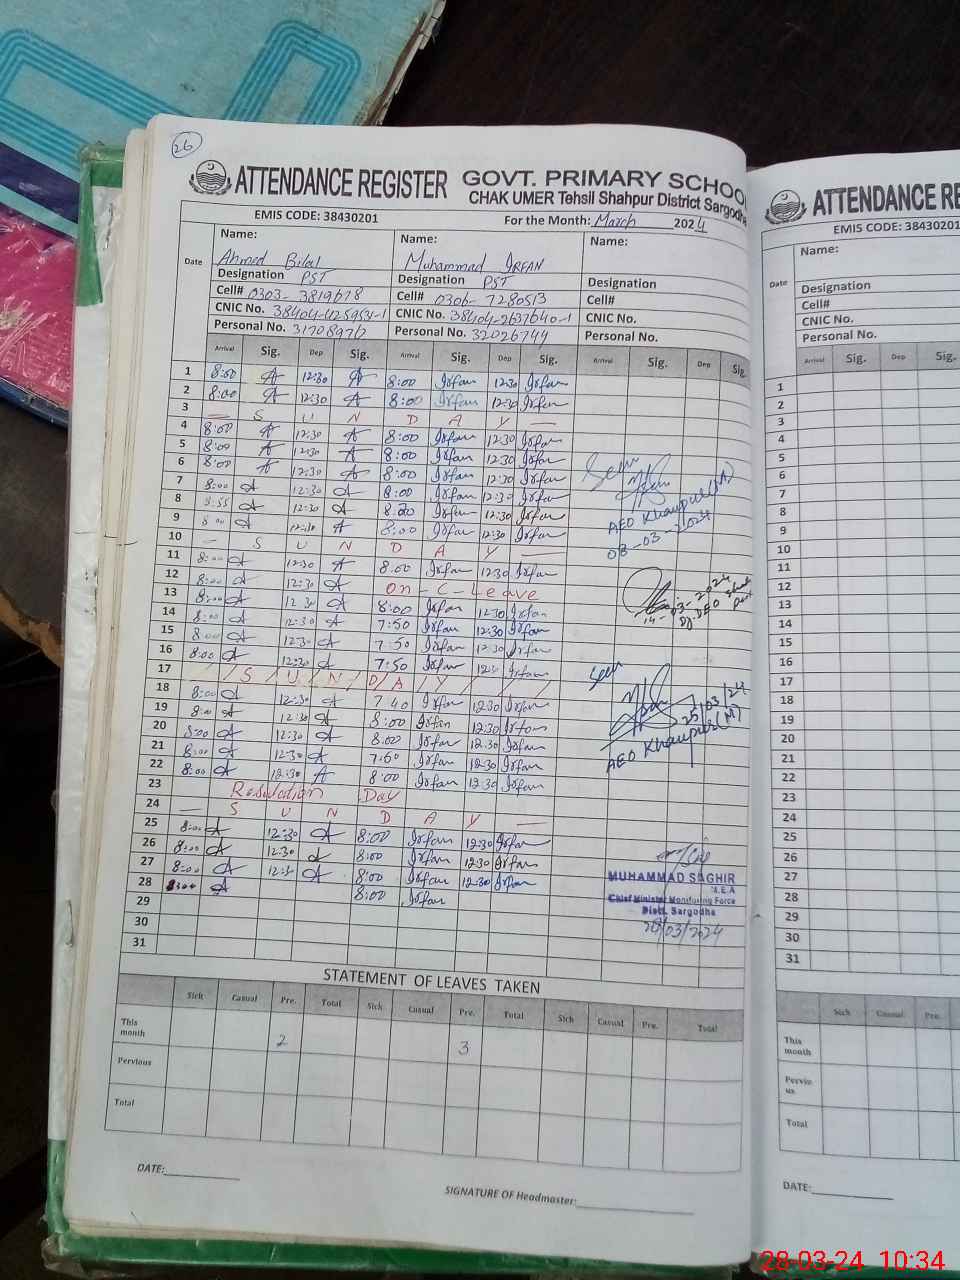 26
ATTENDANCE REGISTER GOVT. PRIMARY SCHOO
CHAK UMER Tehsil Shahpur District Sargodha
EMIS CODE: 38430201 For the Month: March 2024
Date Name: Name: Name:
Ahmed Bilal Muhammad IRFAN
Designation PST Designation PST Designation
Cell# 0303-3819678 Cell# 0306-7280513 Cell#
CNIC No. 38404-4259531-1 CNIC No. 38404-2637640-1 CNIC No.
Personal No. 31708976 Personal No. 32026749 Personal No.
Arrival Sig. Dep Sig. Arrival Sig. Dep Sig. Arrival Sig. Dep Sig.
1 8:00 A 12:30 A 8:00 Irfan 12:30 Irfan
2 8:00 A 12:30 A 8:00 Irfan 12:30 Irfan
3 — S U N D A Y —
4 8:00 A 12:30 A 8:00 Irfan 12:30 Irfan
5 8:00 A 12:30 A 8:00 Irfan 12:30 Irfan
6 8:00 A 12:30 A 8:00 Irfan 12:30 Irfan
7 8:00 A 12:30 A 8:00 Irfan 12:30 Irfan
8 8:55 A 12:30 A 8:20 Irfan 12:30 Irfan
9 8:00 A 12:30 A 8:00 Irfan 12:30 Irfan
10 — S U N D A Y —
11 8:00 A 12:30 A 8:00 Irfan 12:30 Irfan
12 8:00 A 12:30 A On-C-Leave
13 8:00 A 12:30 A 8:00 Irfan 12:30 Irfan
14 8:00 A 12:30 A 7:50 Irfan 12:30 Irfan
15 8:00 A 12:30 A 7:50 Irfan 12:30 Irfan
16 8:00 A 12:30 A 7:50 Irfan 12:30 Irfan
17 / S / U / N / D / A / Y / /
18 8:00 A 12:30 A 7:40 Irfan 12:30 Irfan
19 8:00 A 12:30 A 8:00 Irfan 12:30 Irfan
20 8:00 A 12:30 A 8:00 Irfan 12:30 Irfan
21 8:00 A 12:30 A 7:50 Irfan 12:30 Irfan
22 8:00 A 12:30 A 8:00 Irfan 12:30 Irfan
23 Resulation Day
24 — S U N D A Y —
25 8:00 A 12:30 A 8:00 Irfan 12:30 Irfan
26 8:00 A 12:30 A 8:00 Irfan 12:30 Irfan
27 8:00 A 12:30 A 8:00 Irfan 12:30 Irfan
28 8:00 A 8:00 Irfan
29
30
31
Seen
AEO Khanpur(M)
08-03-2024
14-03-2024
Dy.DEO
Seen
25/03/24
AEO Khanpur(M)
MUHAMMAD SAGHIR
M.E.A
Chief Minister Monitoring Force
Distt. Sargodha
28/03/2024
STATEMENT OF LEAVES TAKEN
Sick Casual Pre. Total Sick Casual Pre. Total Sick Casual Pre. Total
This month 2 3
Pervious
Total
DATE:
SIGNATURE OF Headmaster:
ATTENDANCE RE
EMIS CODE: 38430201
Date Name:
Designation
Cell#
CNIC No.
Personal No.
Arrival Sig. Dep Sig.
1
2
3
4
5
6
7
8
9
10
11
12
13
14
15
16
17
18
19
20
21
22
23
24
25
26
27
28
29
30
31
Sick Casual Pre.
This month
Pervio us
Total
DATE:
28-03-24 10:34